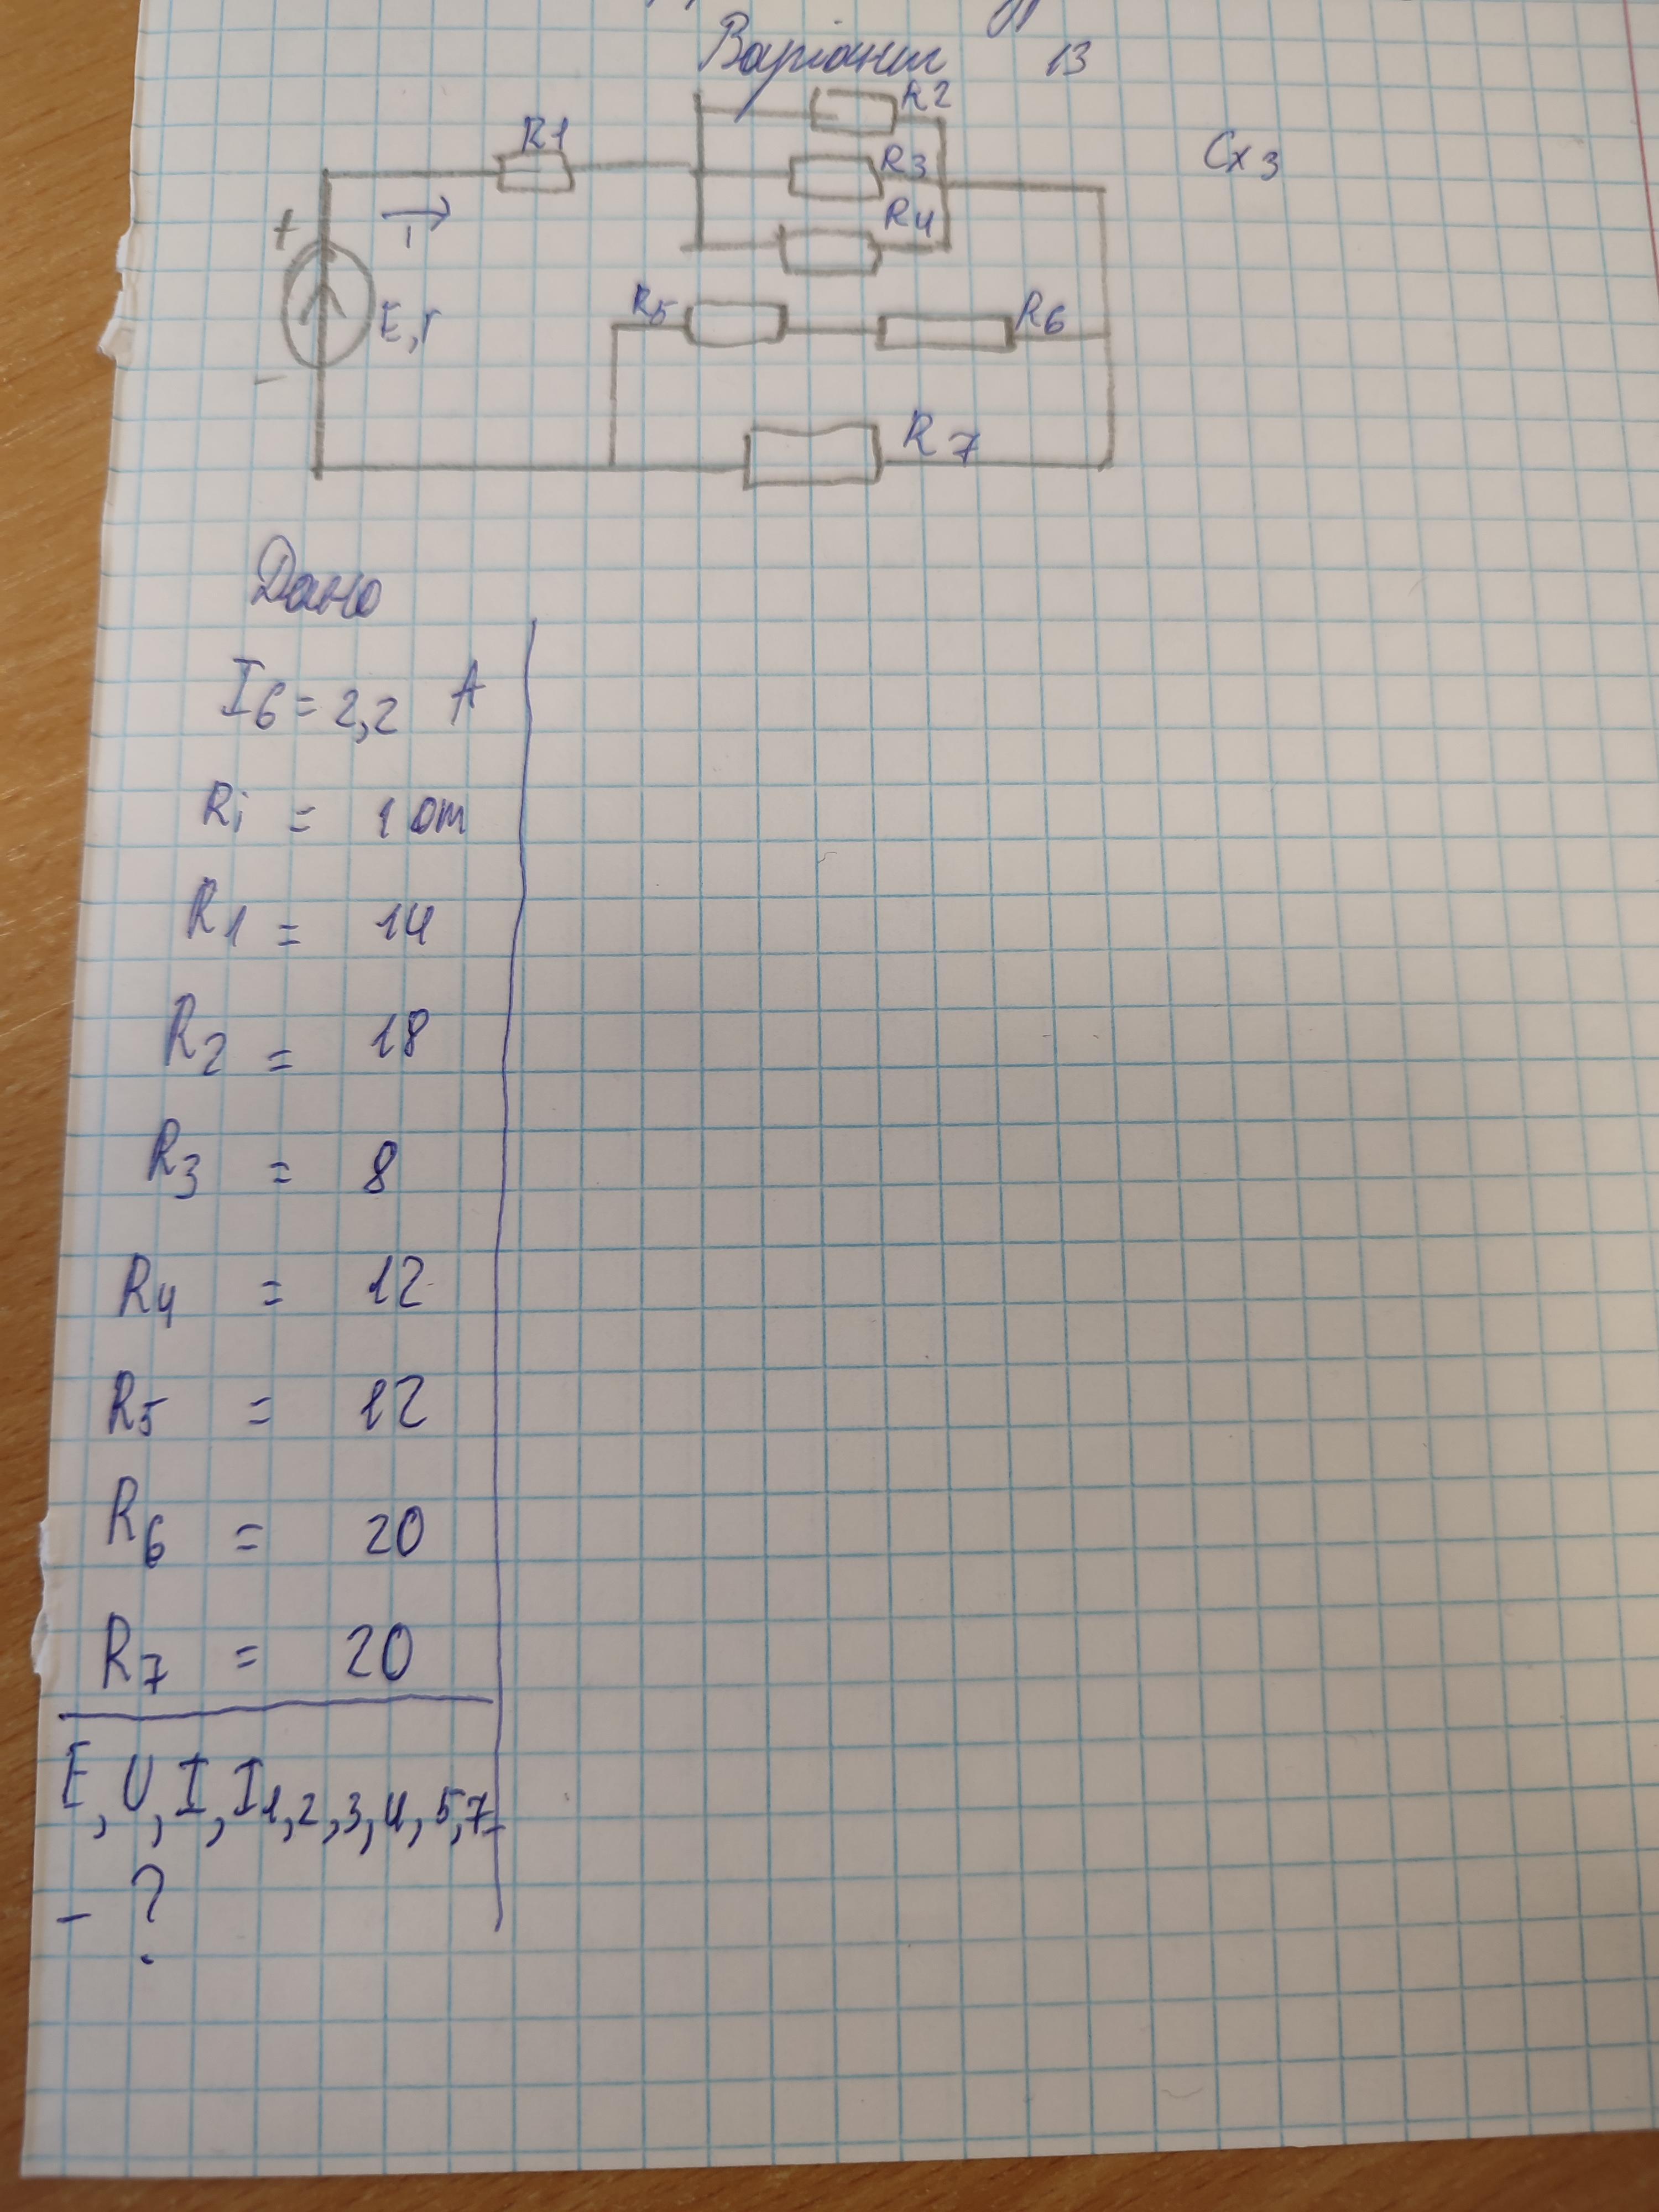 Варіант 13
R2
R1
R3
Сх 3
R4
+
I
E, r
R5
R6
–
R7
Дано
I6 = 2,2 А
Ri = 1 Om
R1 = 14
R2 = 18
R3 = 8
R4 = 12
R5 = 12
R6 = 20
R7 = 20
E, U, I, I1,2,3,4,5,7 –
– ?